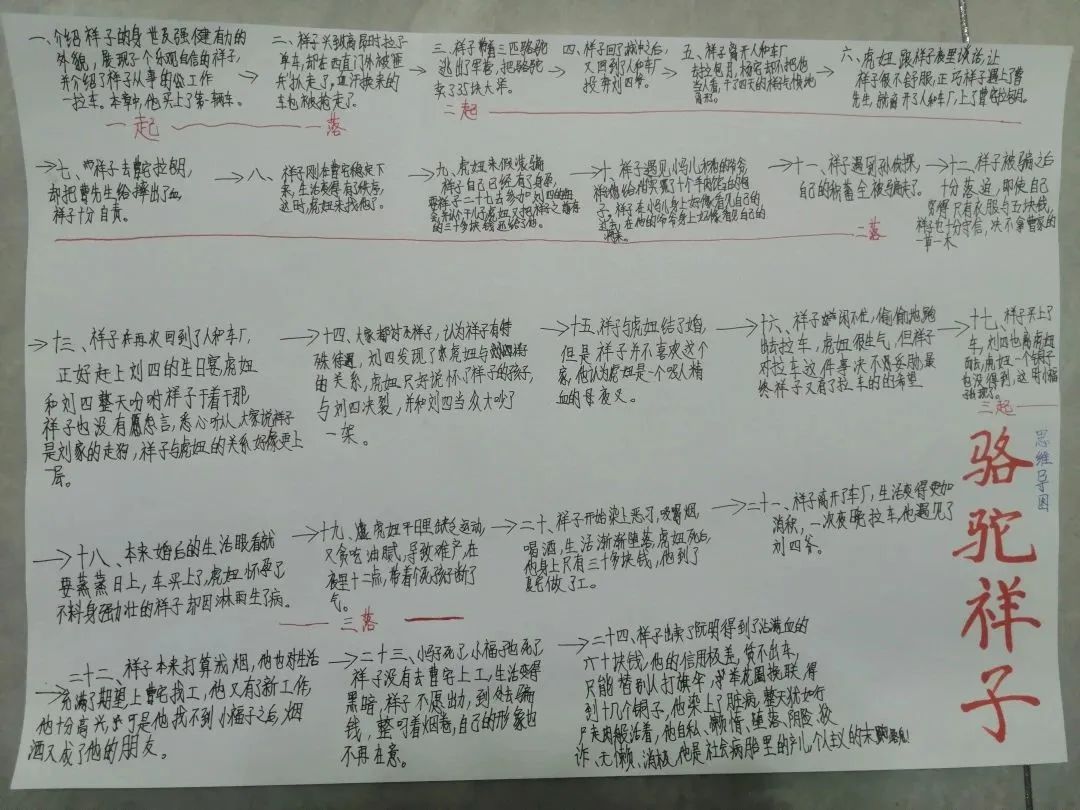 一、介绍祥子的身世及强健有力的
外貌，展现了个乐观自信的样子，
并介绍了祥子从事的工作
—拉车。本章中，他买上了第一辆车。
二、祥子兴致高昂时拉了
单车，却在西直门外被匪
兵扒走了，血汗换来的
车也被抢走了。
三、祥子带着三匹骆驼
逃出了军营，把骆驼
卖了35块大洋。
四、祥子回了城中之后，
又回到了人和车厂
投奔刘四爷。
五、祥子离开人和车厂
去拉包月，杨宅却不把他
当人看，干了四天的祥子气愤地
离职。
六、虎妞跟祥子夜里谈话，让
祥子很不舒服，正巧祥子遇上了曹
先生，就离开了人和车厂，上了曹宅拉包月。
一起
一落
二起
七、祥子去曹宅拉包月，
却把曹先生给摔出了血，
祥子十分自责。
八、祥子刚在曹宅稳定下
来，生活变得有了快后，
这时，虎妞来找他了。
九、虎妞来假装骗
祥子自己已经有了身孕，
要祥子二十七去参加刘四的生日
的三十多块钱还给了他。
十、祥子遇见小马儿和他的爷爷，
祥子给他们买了十个羊肉馅的包
子。祥子在小马儿身上好像看见自己的
过去，在他的爷爷身上好像看见自己的
将来。
十一、祥子遇见孙侦探，
自己的积蓄全被骗走了。
十二、祥子被骗之后
十分落迫，即使自己
穷得只有衣服与五块钱，
祥子也十分守信，决不拿曹家的
一草一木
二落
十三、祥子在再次回到了人和车厂，
正好赶上刘四的生日宴，虎妞
和刘四整天吩咐祥子干着干那，
祥子也没有愿怨言，悉心听从，大家说祥子
是刘家的走狗，祥子与虎妞的关系好像更上一
层。
十四、大家都讨厌祥子，认为祥子有特
殊待遇，刘四发现了虎妞与祥子
的关系，虎妞只好说怀了祥子的孩子，
与刘四决裂，并和刘四当众大吵了
一架。
十五、祥子与虎妞结了婚，
但是祥子并不喜欢这个
家，他认为虎妞是一个吸人精
血的母夜叉。
十六、祥子闲不住，偷偷地跑
出去拉车，虎妞很生气，但祥子
对拉车这件事决不妥协，最
终祥子又有了拉车的的希望
十七、祥子买上了
车，刘四也离虎妞
而去，虎妞一个铜子
也没得到，这时小福
子出现了。
三起
骆驼祥子
思维导图
十八、本来婚后的生活眼看就
要蒸蒸日上，车买上了，虎妞怀孕了
不料身强力壮的祥子却因淋雨生了病。
十九、虎妞平日里缺乏运动，
又贪吃油腻，导致难产，在
夜里十二点，带着个死孩子断了
气。
二十、祥子开始染上恶习，吸着烟，
喝酒，生活渐渐堕落，虎妞死后，
他身上只有三十多块钱，他到了
夏宅做了工。
二十一、祥子离开了车厂，生活变得更加
消积，一次夜晚拉车，他遇见了
刘四爷。
三落
二十二、祥子本来打算戒烟，他也对生活
充满了期望上曹宅找工，他又有了新工作，
他十分高兴，可是他找不到小福子之后，烟
酒又成了他的朋友。
二十三、小马子死了，小福子也死了
祥子没有去曹宅上工，生活变得
黑暗，祥子不愿出力，到处去骗
钱，整叼着烟卷，自己的形象也
不再在意。
二十四、祥子出卖了阮明得到了沾满血的
六十块钱，他的信用极差，赁不出车，
只能替别人打旗伞，举花圈挽联，得
到十几个铜子，他染上了脏病，整天犹如行
尸走肉般活着，他自私、懒惰、堕落、阴险、狡
诈、无懒、消极，他是社会病胎里的产儿，个人主义的末路鬼！